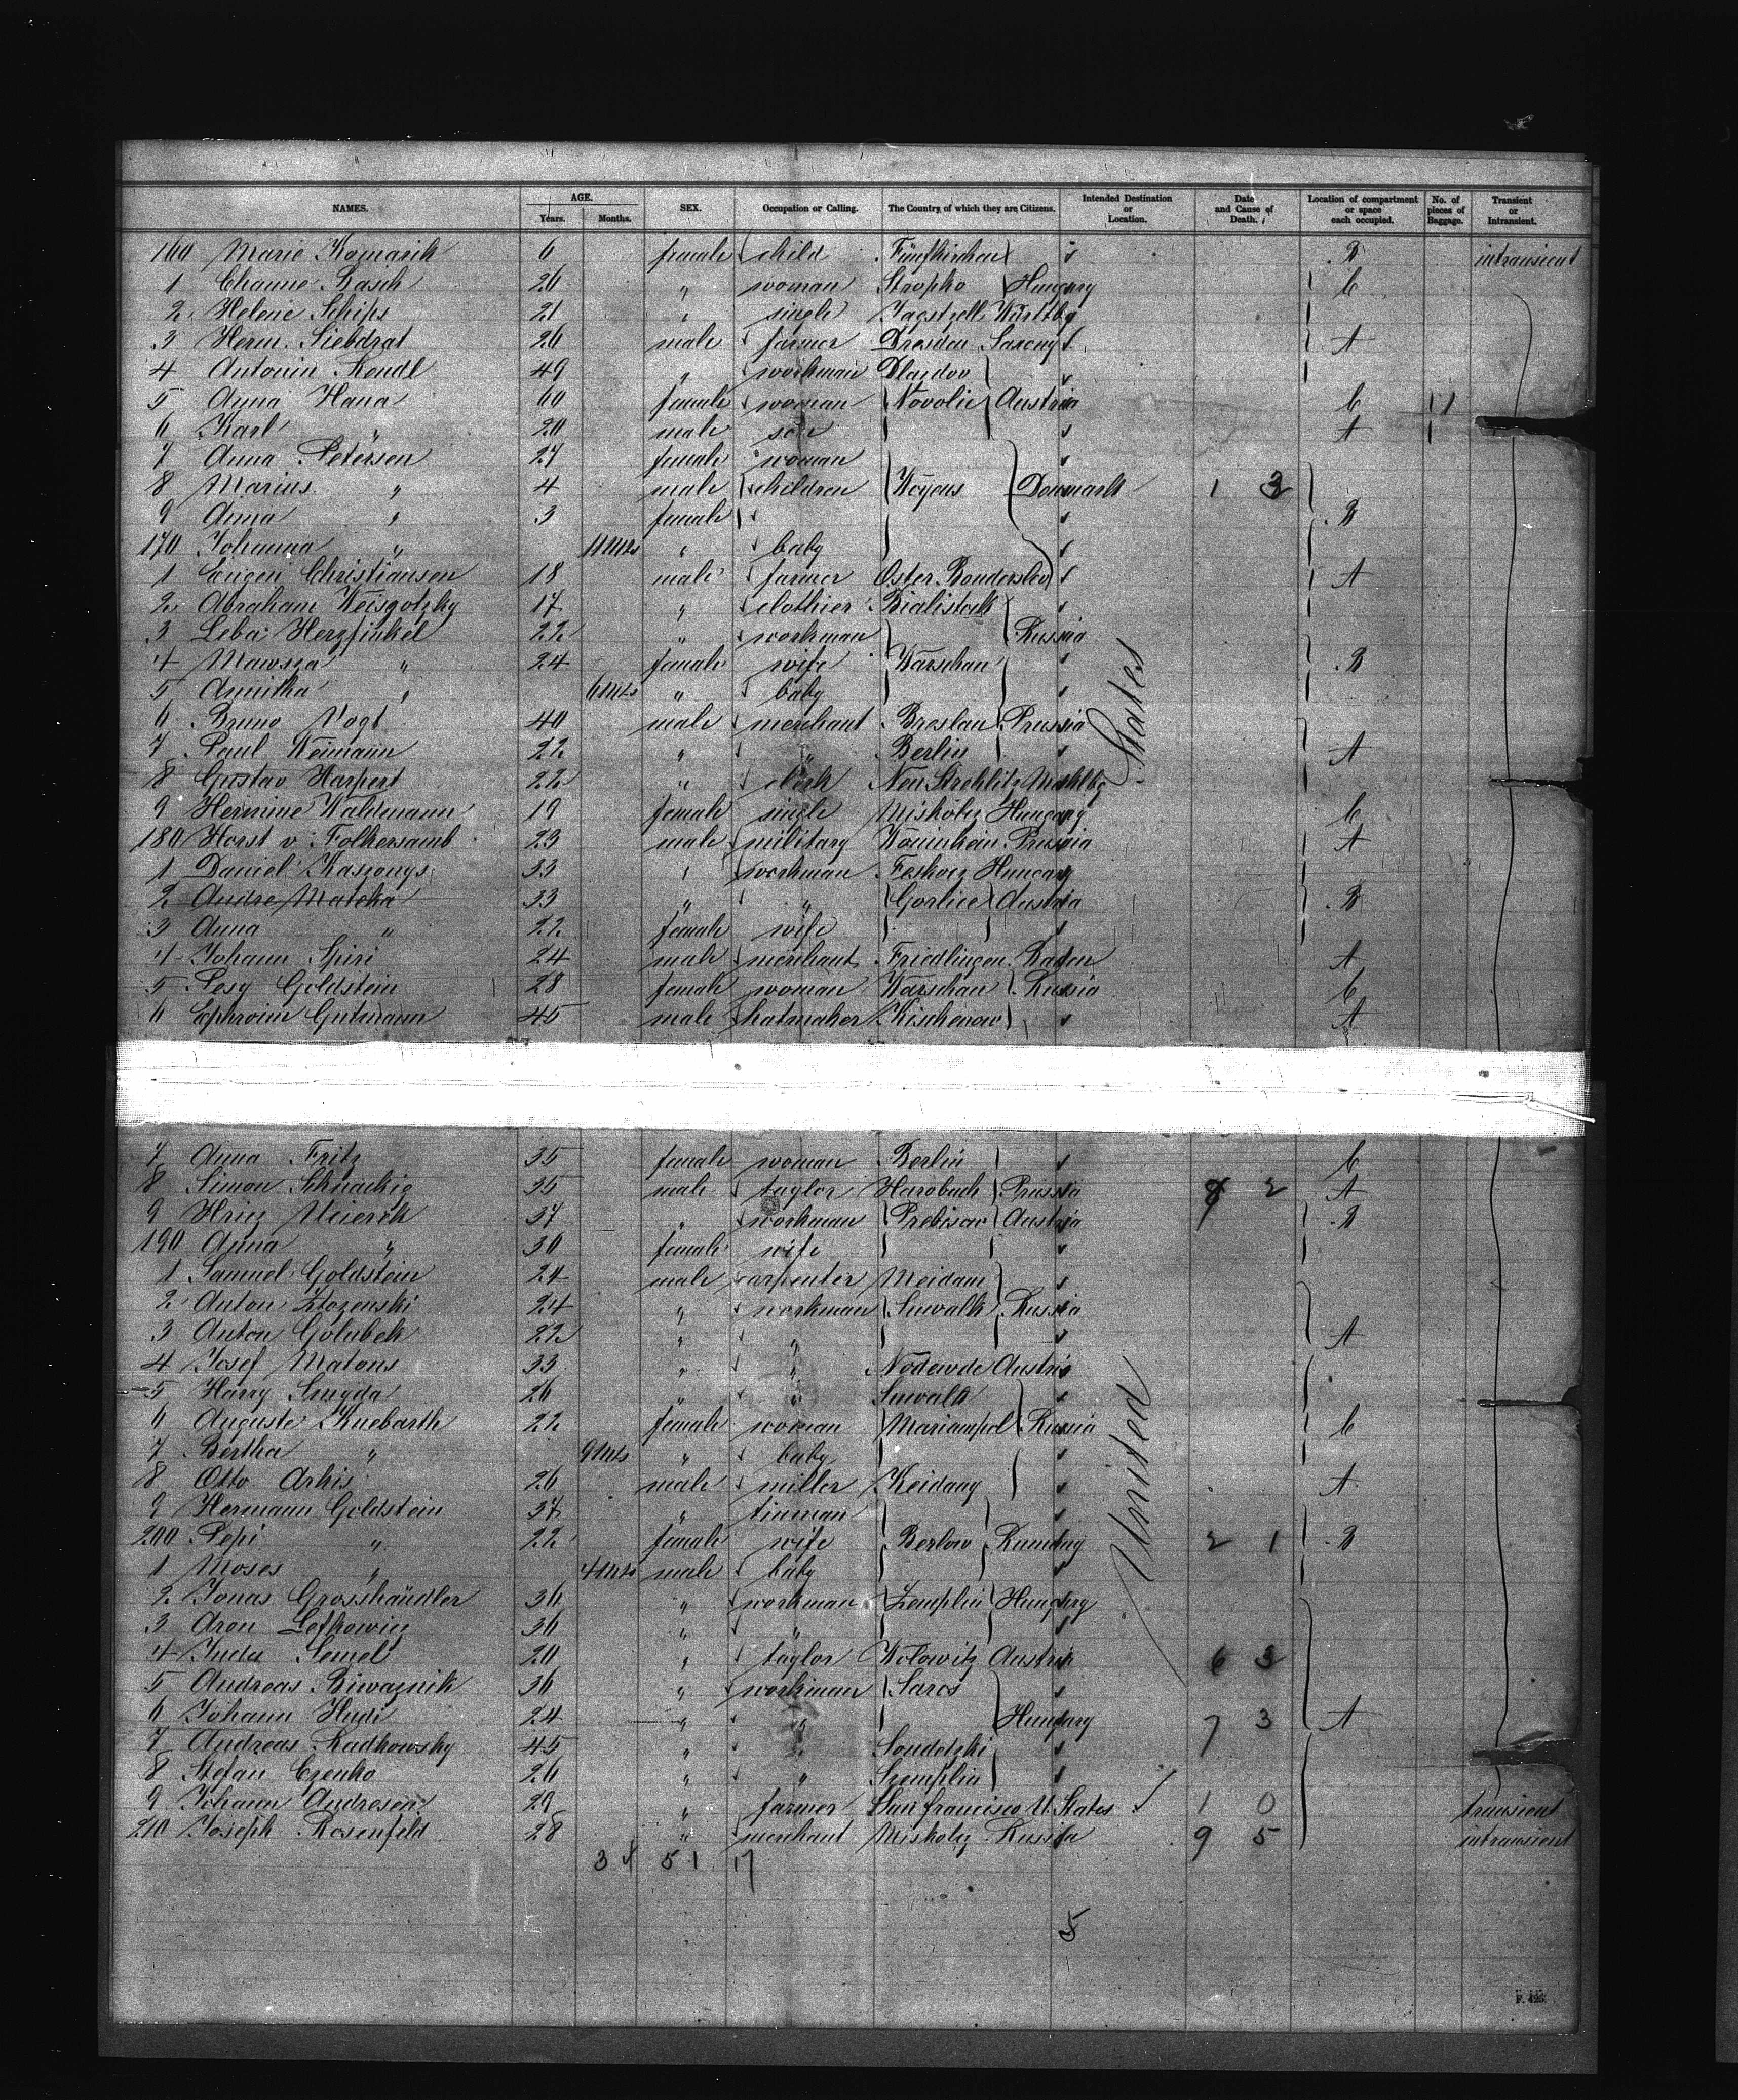 NAMES. AGE. Years. Months. SEX. Occupation or Calling. The Country of which they are Citizens. Intended Destination or Location. Date and Cause of Death. Location of compartment or space each occupied. No. of pieces of Baggage. Transient or Intransient.
160 Marie Komarik 6 female child Fünfkirchen B intransient
1 Channe Rasik 26 " woman Stropko Hungary C
2 Helene Schips 21 " single Jagstzell Württbg
3 Herm. Siebdrat 26 male farmer Dresden Saxony A
4 Antonin Rendl 49 " workman
5 Anna Hana 60 female woman Novolic Austria C
6 Karl " 20 male son A
7 Anna Petersen 27 female woman
8 Marius " 4 male children Woyens Denmark 1 3
9 Anna " 3 female B
170 Johanna " 11 Mts " baby
1 Eugen Christiansen 18 male farmer Oster A
2 Abraham Weisgotzky 17 " clothier Bialistock
3 Leba Herzfinkel 22 " workman Russia
4 Mawsza " 24 female wife Warschau B
5 Annitha " 6 Mts " baby
6 Bruno Vogt 40 male merchant Breslau Prussia
7 Paul Weimann 22 " " Berlin A
8 Gustav Harpert 22 " clerk Neu Strehlitz Mcklbg States
9 Hermine Waldmann 19 female single Miskolcz Hungary C
180 Horst v. Folkersamb 23 male military Prussia A
1 Daniel Kaszonys 33 " workman Hungary
2 Andre Matcka 33 " " Gorlice Austria B
3 Anna " 22 female wife
4 Johann Spiri 24 male merchant Friedlingen Baden A
5 Posy Goldstein 28 female woman Warschau Russia C
6 Ephroim Gutmann 45 male hatmaker Kischenow A
7 Anna Fritz 35 female woman Berlin C
8 Simon Schnackig 35 male taylor Harobach Prussia 8 2 A
9 Hriez Meierik 37 " workman Prebisow Austria B
190 Anna " 30 female wife
1 Samuel Goldstein 24 male carpenter Meidam
2 Anton Zlozenski 24 " workman Suwalk Russia
3 Anton Golubek 22 " " A
4 Josef Matous 33 " " Nodewde Austria
5 Harry Smyda 26 " " Suwalk
6 Auguste Knebarth 22 female woman Mariampol Russia C
7 Bertha " 9 Mts " baby
8 Otto Arkis 26 male miller Keidany A
9 Hermann Goldstein 37 " tinman United
200 Pepi " 22 female wife Berlow 2 1 B
1 Moses " 4 Mts male baby
2 Jonas Grosshändler 36 " workman Zemplin Hungary
3 Aron Lefkowicz 36 " "
4 Juda Semel 20 " taylor Wolowitz Austria 6 3
5 Andreas Biwaznik 36 " workman Saros
6 Johann Hudi 24 " " Hungary 7 3 A
7 Andreas Radkowsky 45 " " Soudetzki
8 Stefan Czenko 26 " " Szemplin
9 Johann Andresen 29 " farmer San francisco U. States 1 0 transient
210 Joseph Rosenfeld 28 " merchant Miskolcz Russia 9 5 intransient
34 51 17
5
F. 425.